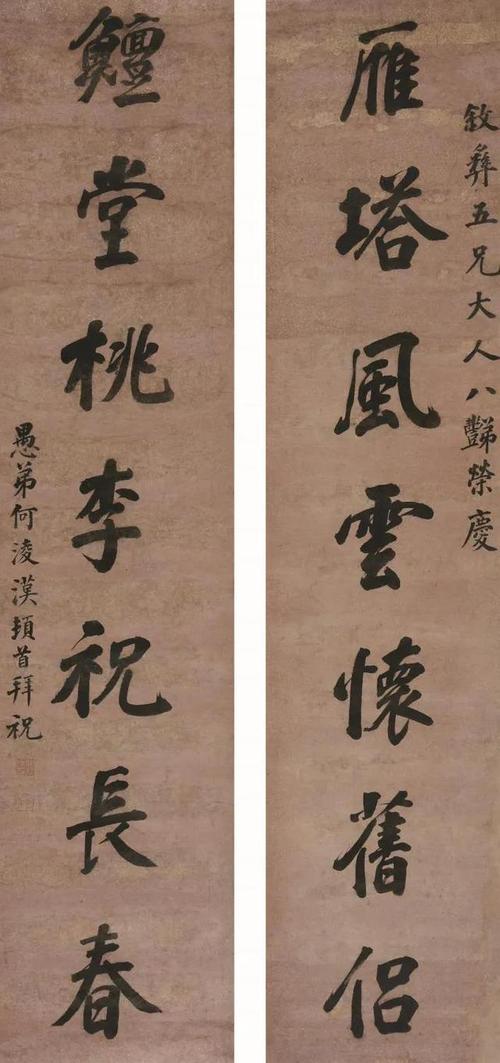 敘彝五兄大人八豑榮慶
雁塔風雲懷舊侶
鱣堂桃李祝長春
愚弟何淩漢頓首拜祝